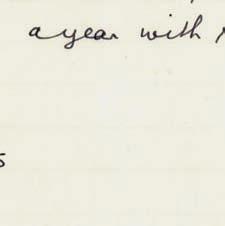 a year with
s